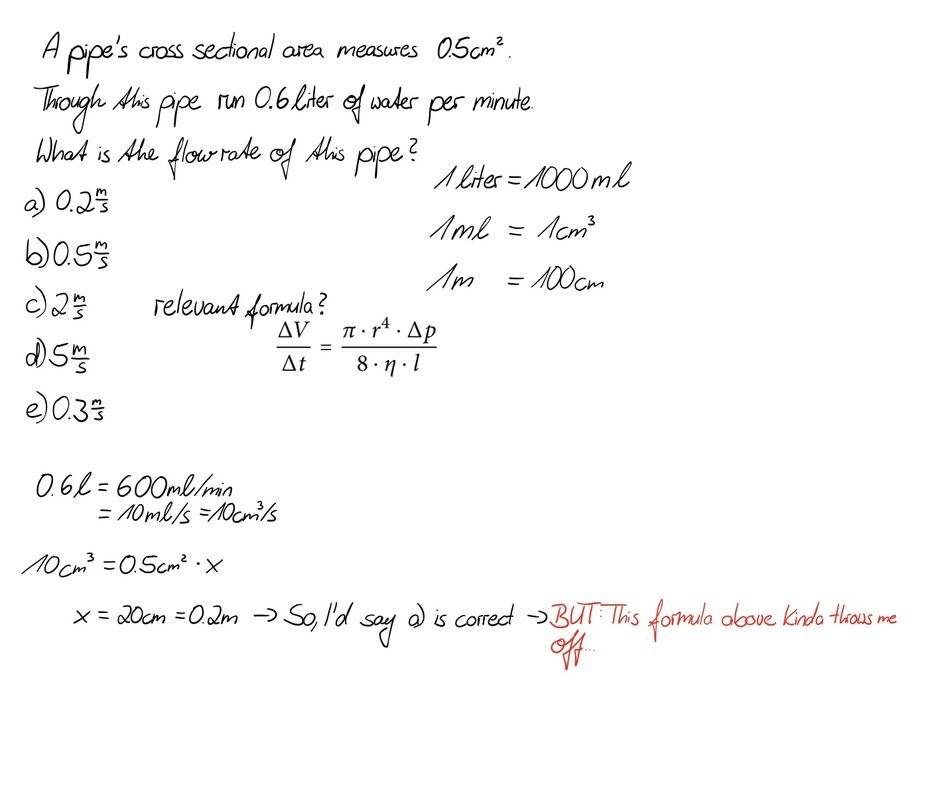 A pipe's cross sectional area measures 0.5cm².
Through this pipe run 0.6 liter of water per minute.
What is the flow rate of this pipe?
1 liter = 1000 ml
a) 0.2 m/s
1ml = 1cm³
b) 0.5 m/s
1m = 100cm
c) 2 m/s
relevant formula?
ΔV/Δt = π · r⁴ · Δp / 8 · η · l
d) 5 m/s
e) 0.3 m/s
0.6l = 600ml/min
= 10ml/s = 10cm³/s
10cm³ = 0.5cm² · x
x = 20cm = 0.2m → So, I'd say a) is correct → BUT: This formula above kinda throws me
off...